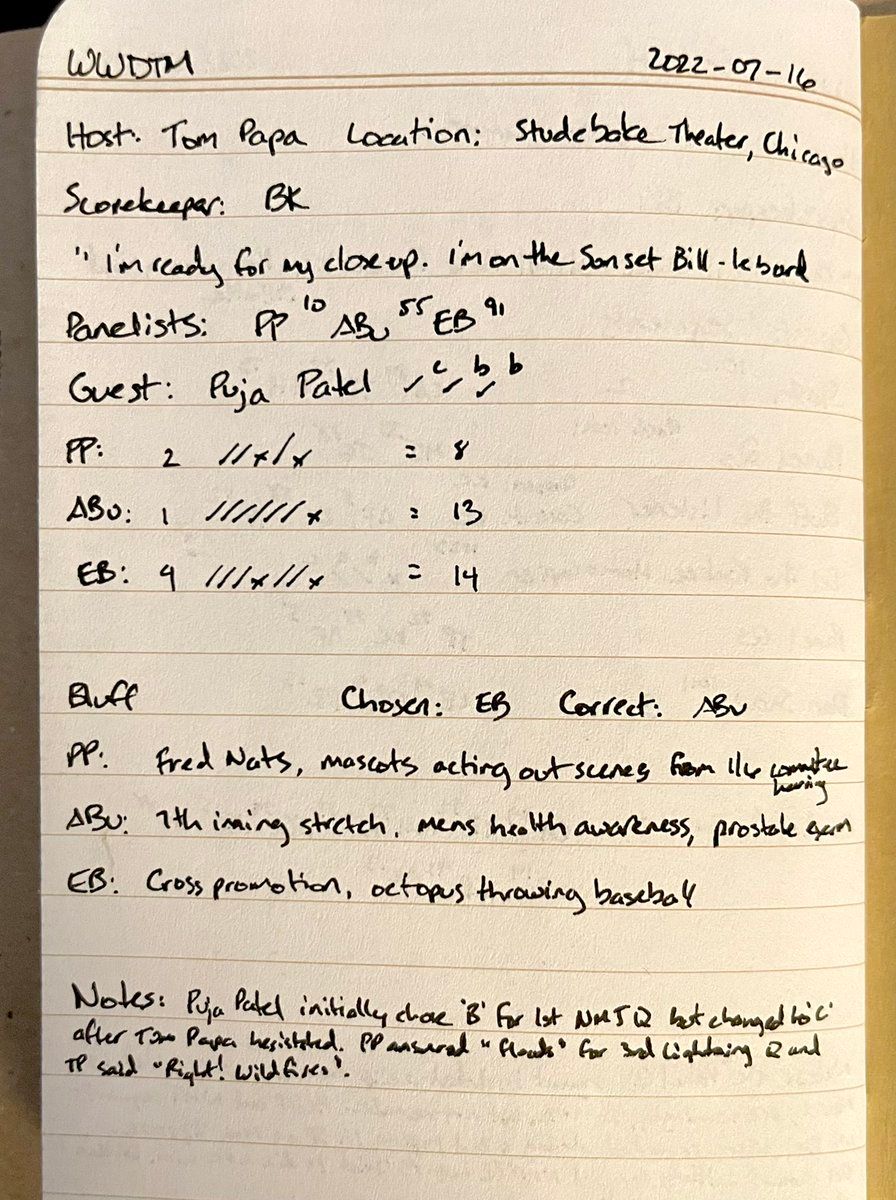 WWDTM 2022-07-16
Host: Tom Papa Location: Studebake Theater, Chicago
Scorekeeper: BK
" I'm ready for my close up. I'm on the Sonset Bill-le board
Panelists: PP 10 ABU 55 EB 91
Guest: Puja Patel ✓ c ✓ b ✓ b
PP: 2 //x/x = 8
ABU: 1 //////x = 13
EB: 4 ///x//x = 14
Bluff Chosen: EB Correct: ABU
PP: Fred Nats, mascots acting out scenes from 1/6 committee
hearing
ABU: 7th inning stretch, mens health awareness, prostate exam
EB: Cross promotion, octopus throwing baseball
Notes: Puja Patel initially chose 'B' for 1st NMJ Q but changed to 'C'
after Tom Papa hesistated. PP answered "floods" for 3rd Lightning Q and
TP said "Right! Wildfires".